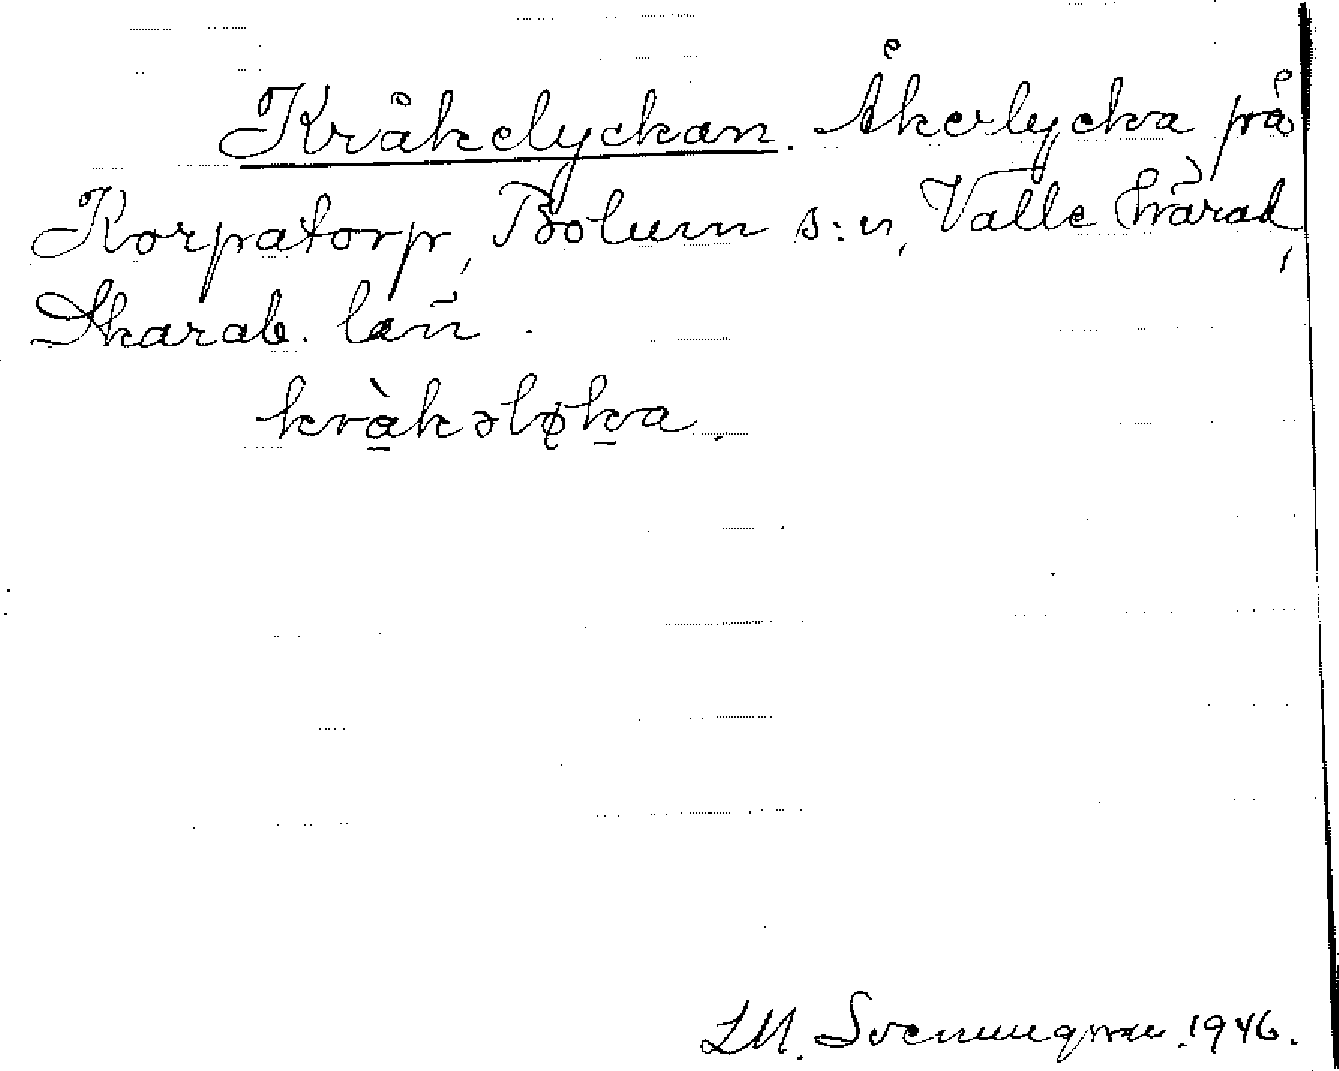 Kråkelyckan. Åkerlycka på
Korpatorp, Bolum s:n, Valle härad,
Skarab. län.
kràkəlø̨ka.
LM. Svenungsson. 1946.